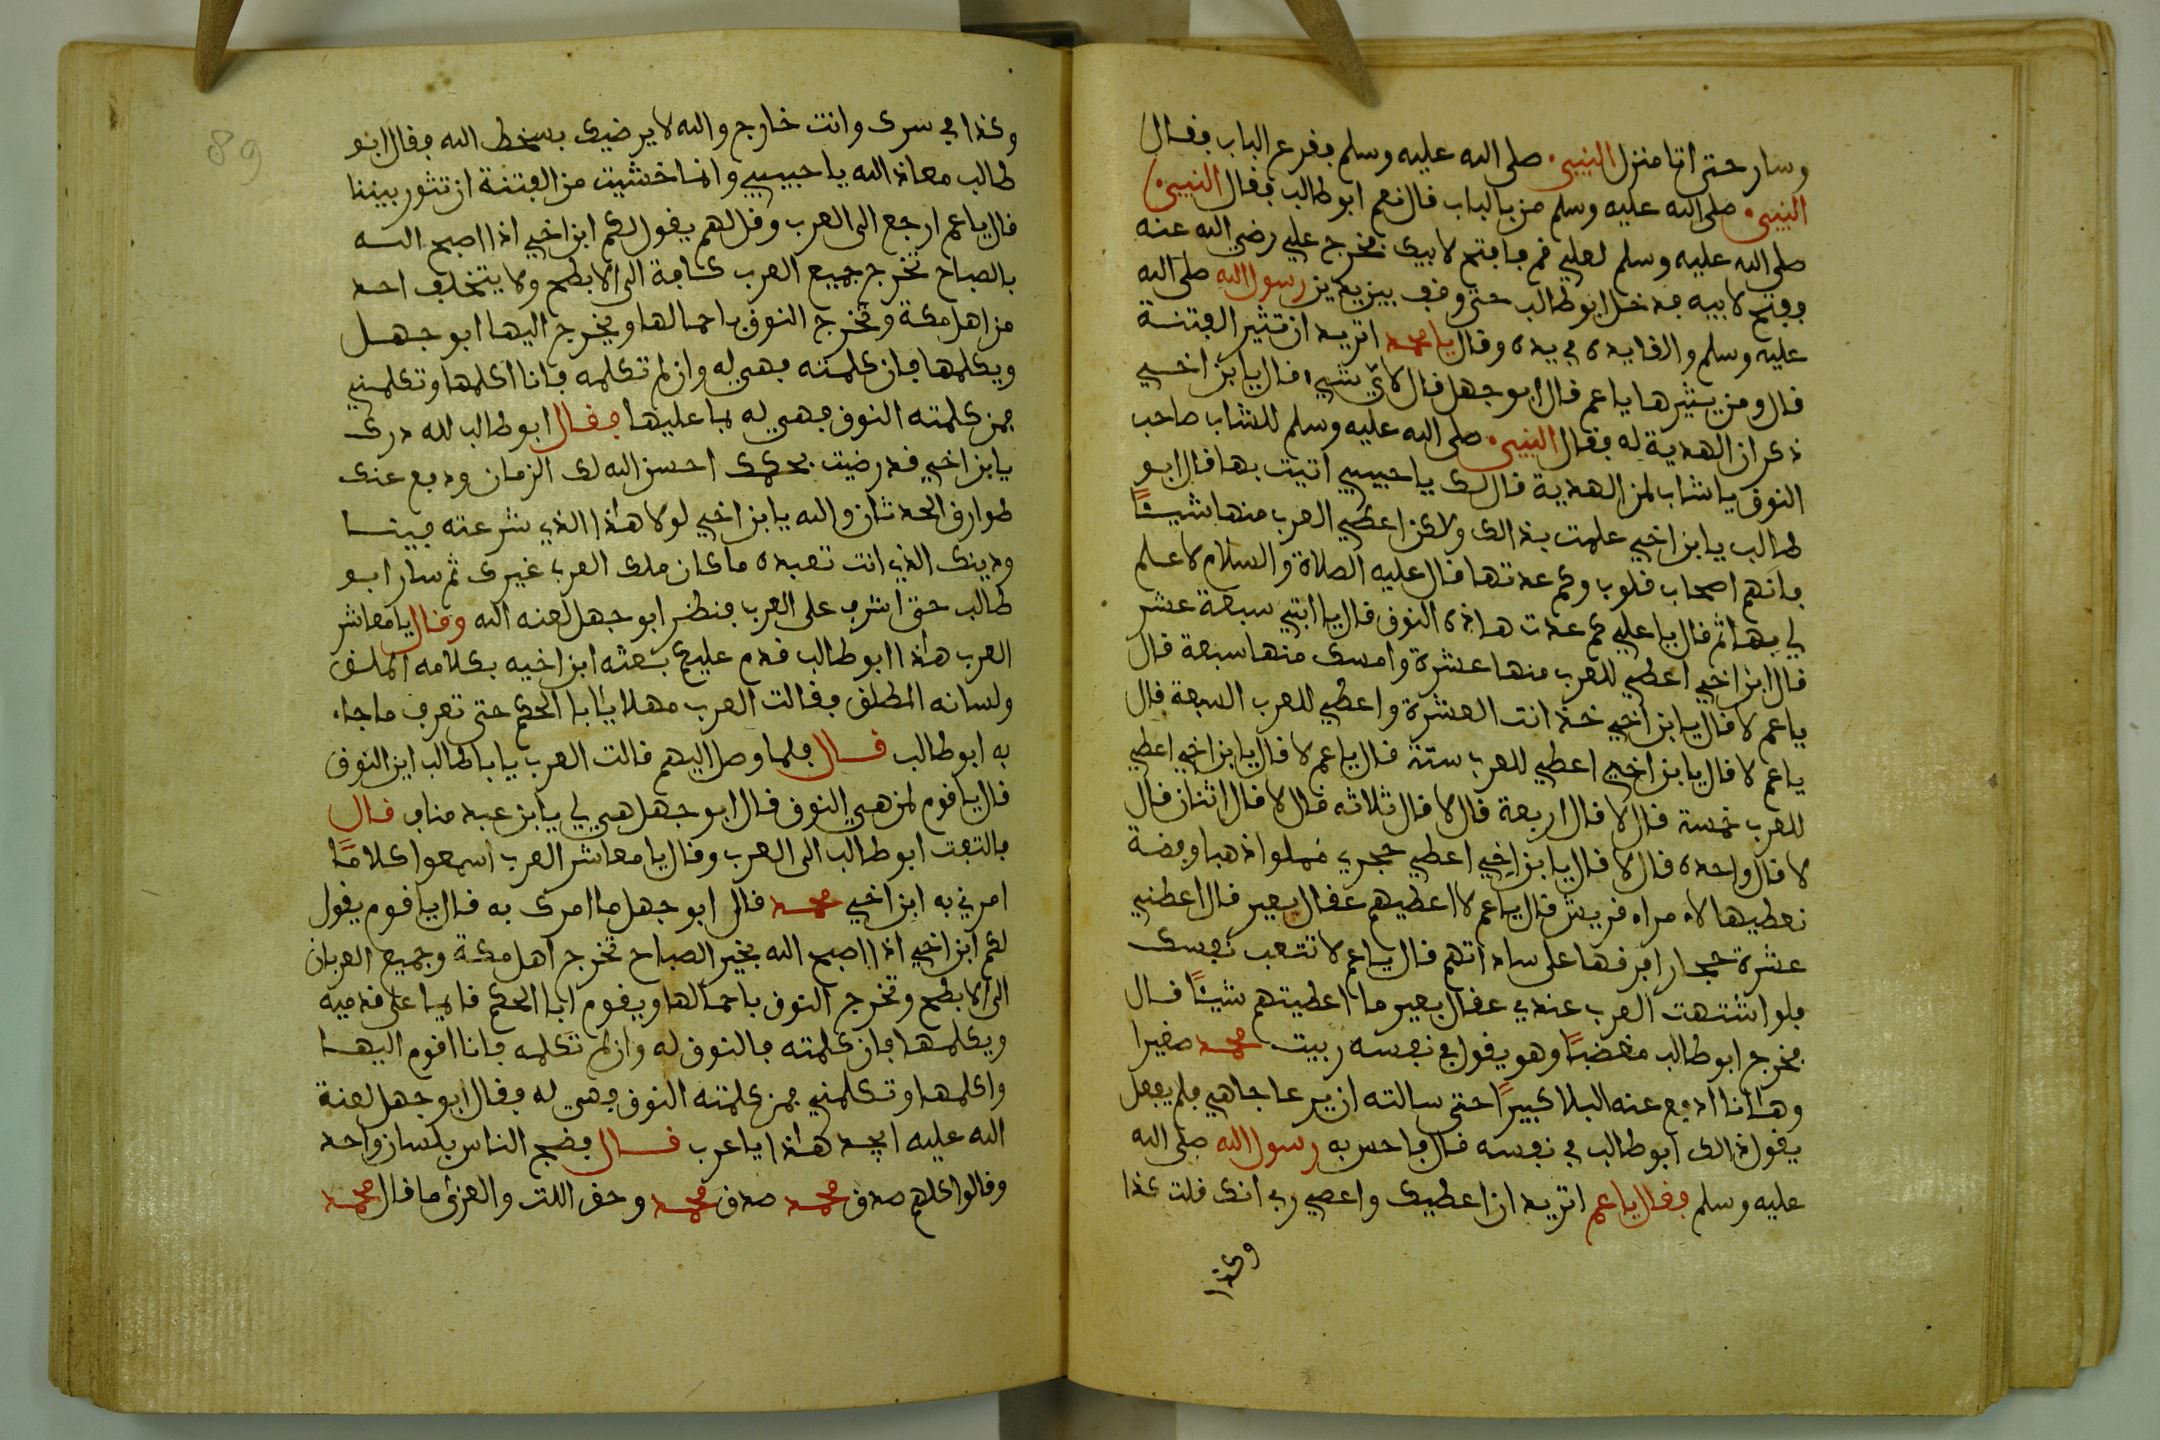 وسار حتى اتا منزل النبي صلى الله عليه وسلم فقرع الباب فقال
النبي صلى الله عليه وسلم من بالباب قال نعم ابو طالب فقال النبي
صلى الله عليه وسلم لعلي قم فافتح لابيك فخرج علي رضي الله عنه
وفتح لابيه فدخل ابو طالب حتى وقف بين يدين رسول الله صلى الله
عليه وسلم والقايده في يده وقال يا محمد اتريد ان تثير الفتنة
قال ومن يثيرها يا عم قال ابو جهل قال لاي شيء قال يا بن اخي
ذكر ان الهدية له فقال النبي صلى الله عليه وسلم للشاب صاحب
النوق يا شاب لمن الهدية قال لك يا حبيبي اتيت بها قال ابو
طالب يا بن اخي علمت بذالك ولاكن اعطي العرب منها شيئًا
فانهم اصحاب قلوب وكم عدتها قال عليه الصلاة والسلام لا علم
لي بها ثم قال يا علي كم عدت هاذه النوق قال يا ابتي سبعة عشر
قال ابن اخي اعطي للعرب منها عشرة وامسك منها سبعة قال
يا عم لا قال يا بن اخي خذ انت العشرة واعطي للعرب السبعة قال
يا عم لا قال يا بن اخي اعطي للعرب ستة قال يا عم لا قال يا بن اخي اعطي
للعرب خمسة قال لا قال اربعة قال لا قال ثلاثه قال لا قال اثنان قال
لا قال واحده قال لا قال يا بن اخي اعطي حجري مملوا ذهبا وفضة
نعطيها لامراه قريش قال يا عم لا اعطيهم عقال بعير قال اعطني
عشرة حجار افرقها على ساداتهم قال يا عم لا تتعب نفسك
فلو اشتهت العرب عندي عقال بعير ما اعطيتهم شيئًا قال
فخرج ابو طالب مغضبًا وهو يقول في نفسه ربيت محمد صغيرا
وهاانا ادفع عنه البلا كبيرًا حتى سالته ان يرعا جاهي فلم يفعل
يقول ذالك ابو طالب في نفسه قال فاحس به رسول الله صلى الله
عليه وسلم فقال يا عم اتريد ان اعطيك واعصي ربي انك قلت كذا
وكذا
89
وكذا في سرك وانت خارج والله لا يرضيك بسخط الله فقال ابو
طالب معاذ الله يا حبيبي وانما خشيت من الفتنة ان تثور بيننا
قال يا عم ارجع الى العرب وقل لهم يقول لكم ابن اخي اذا اصبح الله
بالصباح تخرج جميع العرب كافة الى الابطح ولا يتخلف احد
من اهل مكة وتخرج النوق باحمالها ويخرج اليها ابو جهل
ويكلمها فان كلمته فهي له وان لم تكلمه فانا اكلمها وتكلمني
فمن كلمته النوق فهي له بما عليها فقال ابو طالب لله درك
يا بن اخي قد رضيت بحكمك احسن الله لك الزمان ودفع عنك
طوارق الحدثان والله يا بن اخي لولا هاذا الذي شرعته فينا
ودينك الذي انت تعبده ما كان ملك العرب غيرك ثم سار ابو
طالب حتى اشرف على العرب فنظر ابو جهل لعنه الله وقال يا معاشر
العرب هاذا ابو طالب قدم عليكم بعثه ابن اخيه بكلامه الملفق
ولسانه المطلق فقالت العرب مهلا يا ابا الحكم حتى تعرف ما جاء
به ابو طالب قال فلما وصل اليهم قالت العرب يا با طالب اين النوق
قال يا قوم لمن هي النوق قال ابو جهل هي لي يا بن عبد مناف قال
فالتفت ابو طالب الى العرب وقال يا معاشر العرب اسمعوا كلامًا
امرني به ابن اخي محمد قال ابو جهل ما امرك به قال يا قوم يقول
لكم ابن اخي اذا اصبح الله بخير الصباح تخرج اهل مكة وجميع العربان
الى الابطح وتخرج النوق باحمالها ويقوم ابا الحكم قايما على قدميه
ويكلمها فان كلمته فالنوق له وان لم تكلمه فانا اقوم اليها
واكلمها وتكلمني فمن كلمته النوق فهي له فقال ابو جهل لعنة
الله عليه ايجد هاذا يا عرب قال فضج الناس بلسان واحد
وقالوا كلهم صدق محمد صدق محمد وحق اللت والعزى ما قال محمد